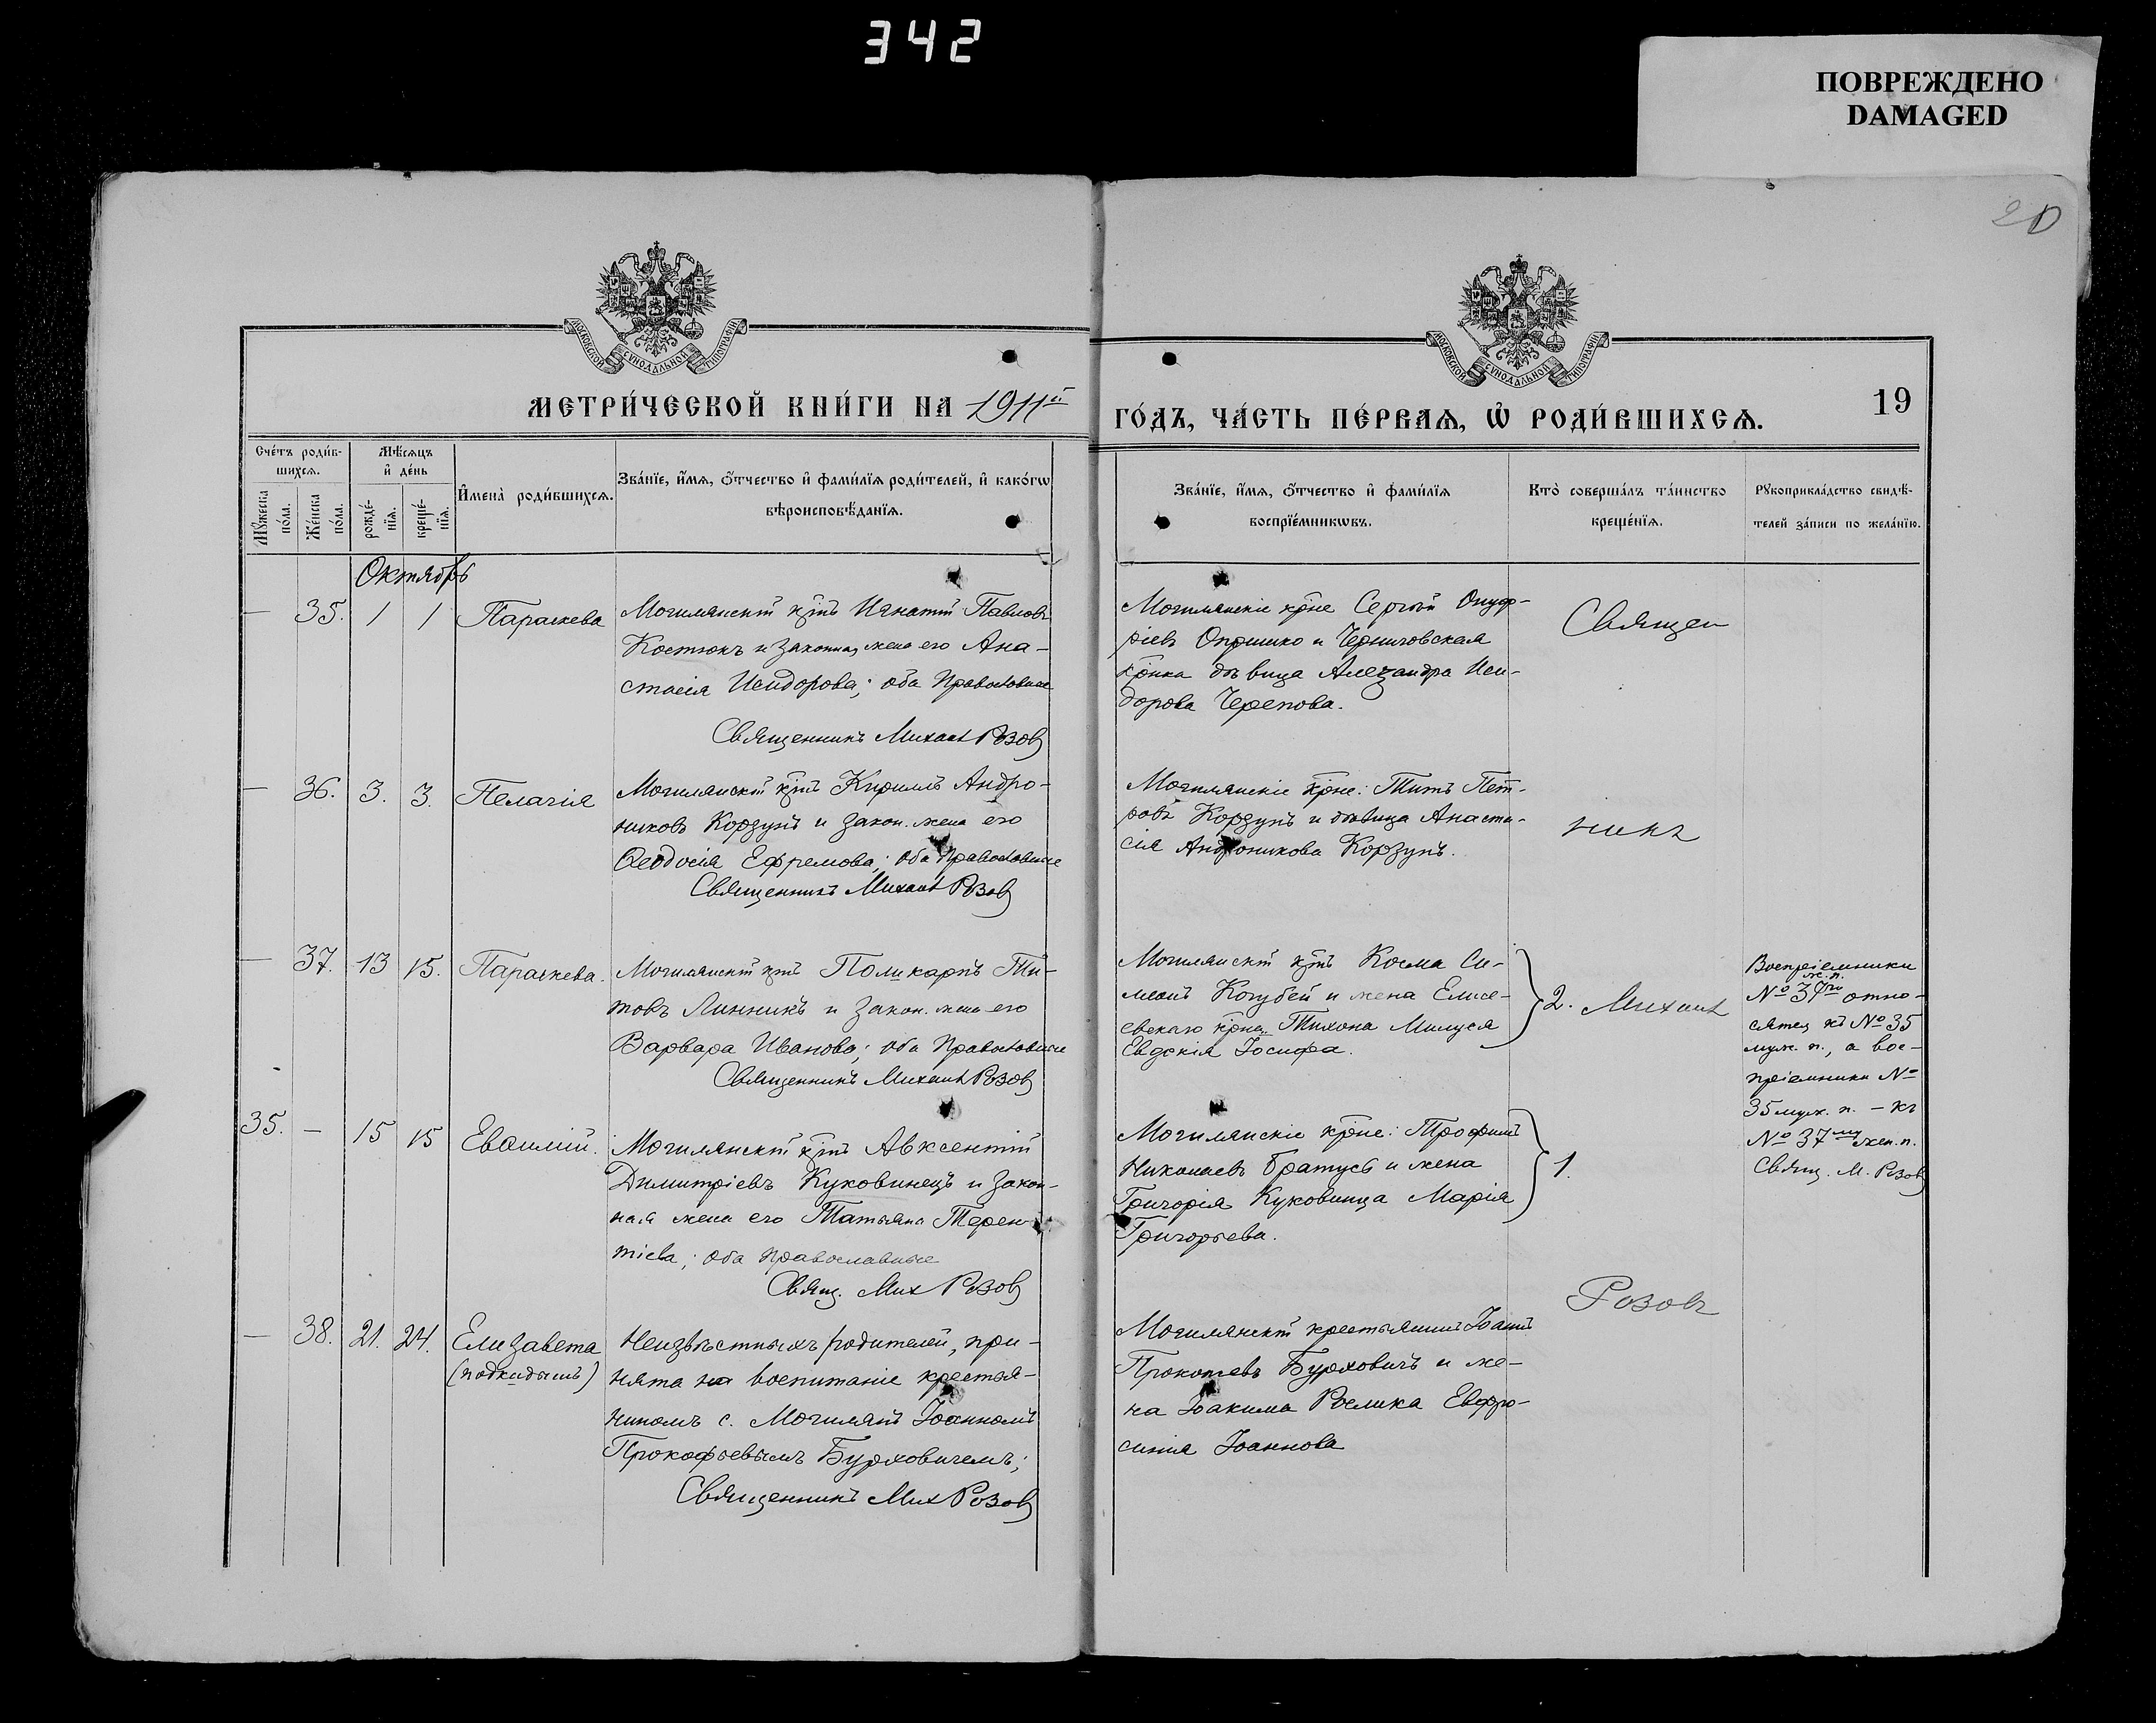 342
ПОВРЕЖДЕНО
DAMAGED
20
МОСКОВСКОЙ СУНОДАЛЬНОЙ ТИПОГРАФІИ
МОСКОВСКОЙ СУНОДАЛЬНОЙ ТИПОГРАФІИ
МЕТРИ́ЧЕСКОЙ КНИ́ГИ НА 1911й
ГО́ДЪ, ЧА́СТЬ ПЕ́РВАЯ, Ѡ҆ РОДИ́ВШИХСЯ.
19
Сче́тъ роди́в-
шихся.
Мꙋ́жеска
по́ла.
Же́нска
по́ла.
Мѣ́сяцъ
и҆ де́нь
рожде́-
нїя.
креще́-
нїя.
И҆мена̀ роди́вшихся.
Зва́нїе, и҆́мя, ѻ҆́тчество и҆ фами́лїя роди́телей, и҆ како́гѡ
вѣроисповѣ́данїя.
Зва́нїе, и҆́мя, ѻ҆́тчество и҆ фами́лїя
воспрїе́мникѡвъ.
Кто̀ соверша́лъ та́инство
креще́нїя.
Рꙋкоприкла́дство свидѣ́-
телей за́писи по жела́нїю.
Октябрь
— 35. 1 1 Параскева
Могилянскій кр̄нъ Игнатій Павловъ
Костюкъ и законная жена его Ана-
стасія Исидорова; оба православные
Священникъ Михаилъ Розовъ
Могилянскіе кр̄не Сергѣй Онуф-
ріевъ Опришко и Черниловская
кр̄нка дѣвица Александра Иси-
дорова Черепова.
Священ
— 36. 3. 3. Пелагія
Могилянскій кр̄нъ Кириллъ Андро-
никовъ Корзунъ и закон. жена его
Ѳеодосія Ефремова; оба православные
Священникъ Михаилъ Розовъ
Могилянскіе кр̄не: Титъ Пет-
ровъ Корзунъ и дѣвица Анаста-
сія Андроникова Корзунъ.
никъ
— 37. 13 15. Параскева.
Могилянскій кр̄нъ Поликарпъ Ти-
товъ Линникъ и закон. жена его
Варвара Иванова; оба православные
Священникъ Михаилъ Розовъ
Могилянскій кр̄нъ Косма Си-
меонъ Когубей и жена Елисе-
евскаго кр̄на Тихона Милуся
Евдокія Іосифа.
2. Михаилъ
Воспріемники
ж. п.
№ 37го отно-
сятся къ № 35
муж. п., а вос-
пріемники №
35 муж. п. – къ
№ 37му жен. п.
Свящ. М. Розовъ
35. — 15 15 Евѳимій.
Могилянскій кр̄нъ Авксентій
Димитріевъ Куковинецъ и закон-
ная жена его Татьяна Терен-
тіева; оба православные
Свящ. Мих Розовъ
Могилянскіе кр̄не: Трофимъ
Николаевъ Братусь и жена
Григорія Куковинца Марія
Григорьева.
1.
Розовъ
— 38. 21. 24. Елизавета
(подкидышъ)
Неизвѣстныхъ родителей, при-
нята на воспитаніе крестья-
ниномъ с. Могилянъ Іоанномъ
Прокофьевымъ Бурховичемъ;
Священникъ Мих Розовъ
Могилянскій крестьянинъ Іоаннъ
Прокопіевъ Бурховичъ и же-
на Іоакима Рослика Евфро-
синія Іоаннова